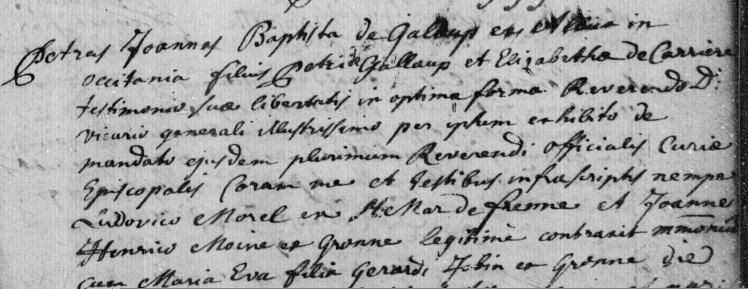 Petrus Joannes Baptista de Gallaup ex in
occitania filius Petri de Gallaup et Elizabethæ de Carriere
testimonio suæ libertatis in optima forma Reverendo D:
vicario generali illustrissimo per ipsum exhibito de
mandato ejusdem plurimum Reverendi officialis Curiæ
Episcopalis Coram me et testibus infrascriptis nempe
Ludovico Morel en et Joannes
Henrico Moine ex Gronne legitimè contraxit
cum Maria Eva filia Gerardi Jobin ex Gronne die